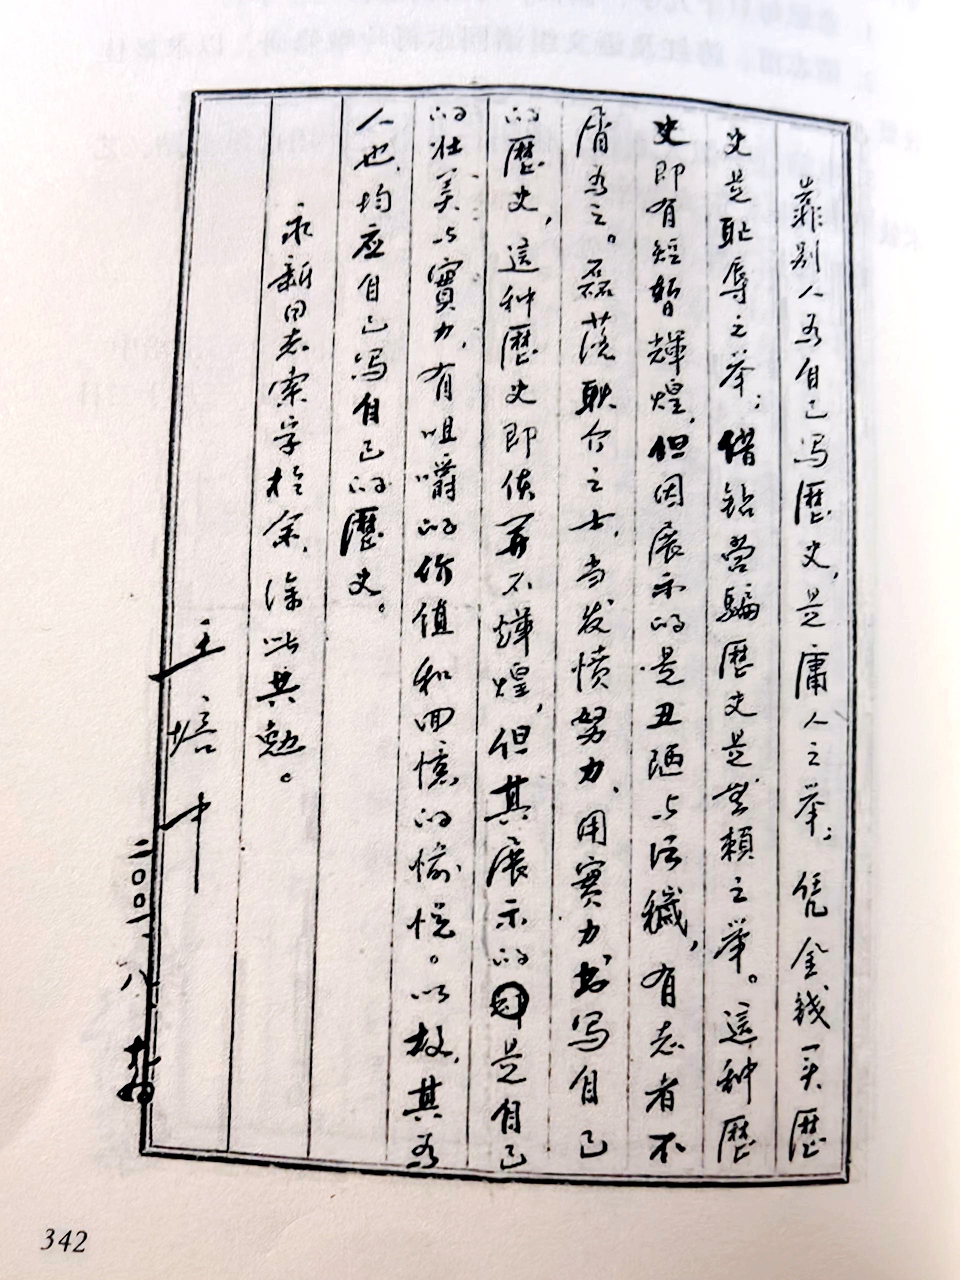 靠别人为自己写歷史，是庸人之举；凭金钱买歷
史是耻辱之举；借钻营骗歷史是无赖之举。這种歷
史即有短暂辉煌，但因展示的是丑陋与污穢，有志者不
屑为之。磊落耿介之士，当发愤努力，用實力书写自己
的歷史，這种歷史即使并不辉煌，但其展示的是自己
的壮美与實力，有咀嚼的价值和回憶的愉悦。以故，其为
人也，均应自己写自己的歷史。
永新同志索字于余，涂此共勉。
王培中
二〇〇一、八
342